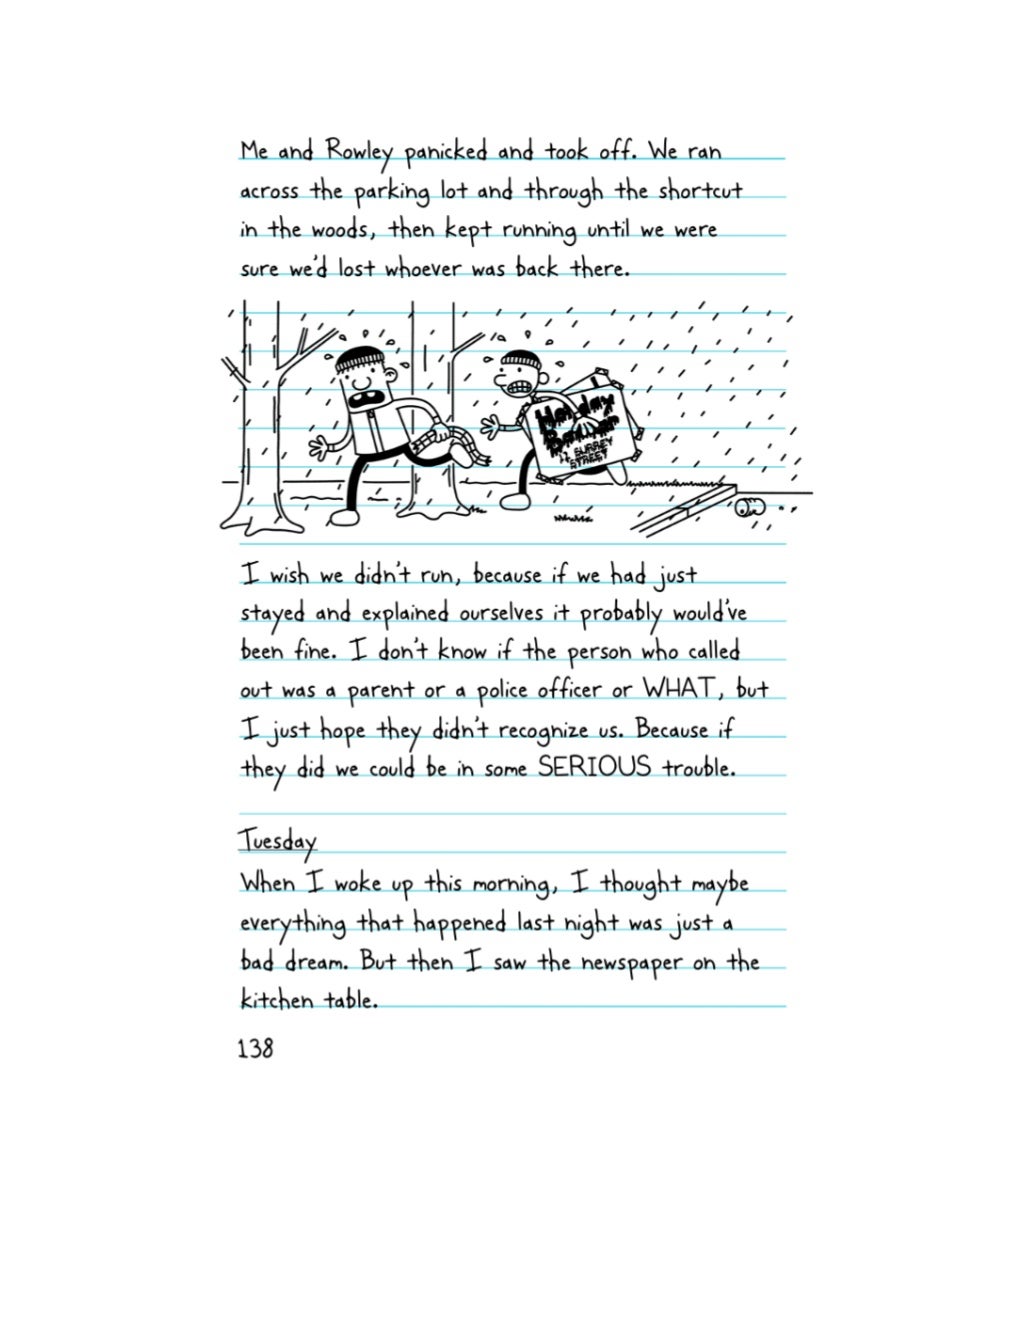 Me and Rowley panicked and took off. We ran
across the parking lot and through the shortcut
in the woods, then kept running until we were
sure we'd lost whoever was back there.
Holiday
Bazaar
11 SURREY
STREET
I wish we didn't run, because if we had just
stayed and explained ourselves it probably would've
been fine. I don't know if the person who called
out was a parent or a police officer or WHAT, but
I just hope they didn't recognize us. Because if
they did we could be in some SERIOUS trouble.
Tuesday
When I woke up this morning, I thought maybe
everything that happened last night was just a
bad dream. But then I saw the newspaper on the
kitchen table.
138